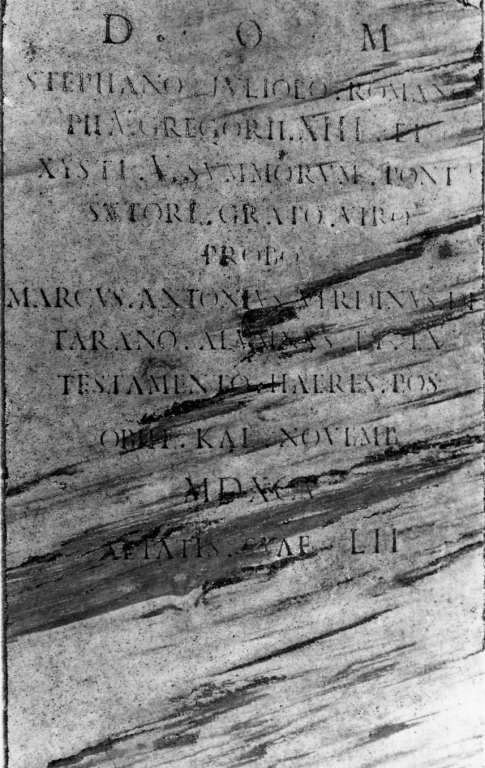 D . O M
STEPHANO . IVLIOLO . ROMAN
PHA . GREGORII . XIII . ET
XYSTI . V . SVMMORVM . PONT
SVTORI . GRATO . VIRO
PROBO
MARCVS . ANTONIVS . VIRDINVS DE
TARANO . ALVMNVS ET . EX
TESTAMENTO . HAERES . POS
OBIIT . KAL . NOVEMB
AETATIS . SVAE LII